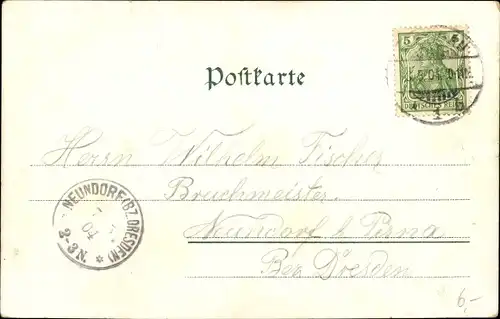 5
5
DEUTSCHES REICH
Postkarte
Herrn Wilhelm Fischer
Bruchmeister.
Neundorf b Pirna
Bez. Dresden
NEUNDORF (BZ. DRESDEN)
04
2-3N.
6,-